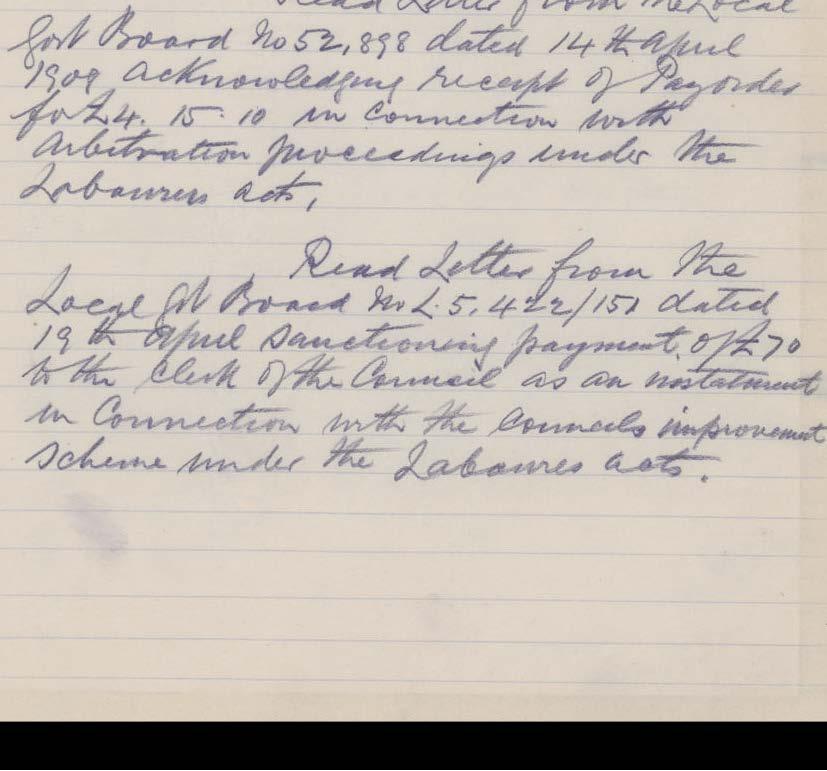 Read Letter from the Local
Govt Board No 52,898 dated 14th April
1909 acknowledging receipt of Payorder
for £4. 15. 10 in connection with
Arbitration proceedings under the
Labourers acts,
Read Letter from the
Local Gvt Board No L. 5,422/151 dated
19th April sanctioning payment of £70
to the Clerk of the Council as an instalment
in Connection with the Councils improvement
Scheme under the Labourers acts.